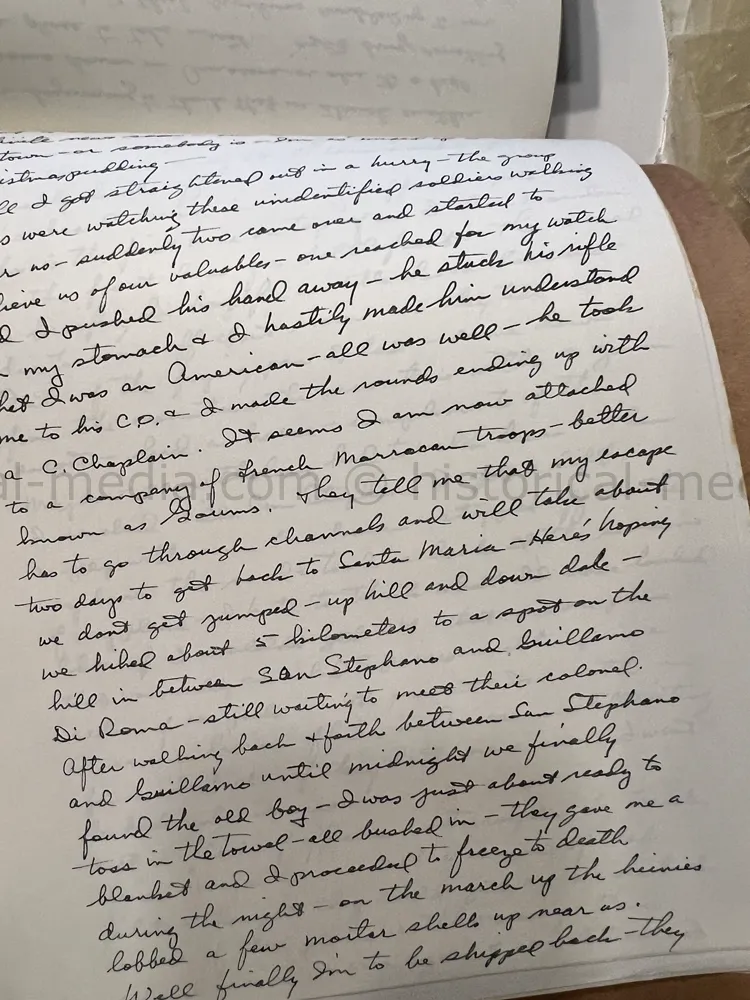 town - or somebody is -
pudding -
I got straightened out in a hurry - the group
were watching these unidentified soldiers walking
us - suddenly two came over and started to
us of our valuables - one reached for my watch
I pushed his hand away - he stuck his rifle
my stomach & I hastily made him understand
I was an American - all was well - he took
me to his C.P. & I made the rounds ending up with
a C. Chaplain. It seems I am now attached
to a company of French Marrocan troops - better
known as Goums. They tell me that my escape
has to go through channels and will take about
two days to get back to Santa Maria - Here's hoping
we dont get jumped - up hill and down dale -
we hiked about 5 kilometers to a spot on the
hill in between San Stephano and Guillamo
Di Roma - still waiting to meet their colonel.
After walking back & forth between San Stephano
and Guillamo until midnight we finally
found the old boy - I was just about ready to
toss in the towel - all bushed in - they gave me a
blanket and I proceeded to freeze to death
during the night - on the march up the heinies
lobbed a few mortar shells up near us.
Well finally I'm to be shipped back - they
historical-media.com ©